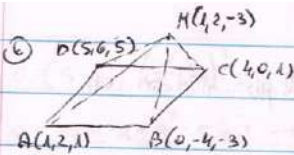 M(1,2,-3)
D(5,6,5)
C(4,0,1)
A(1,2,1)
B(0,-4,-3)